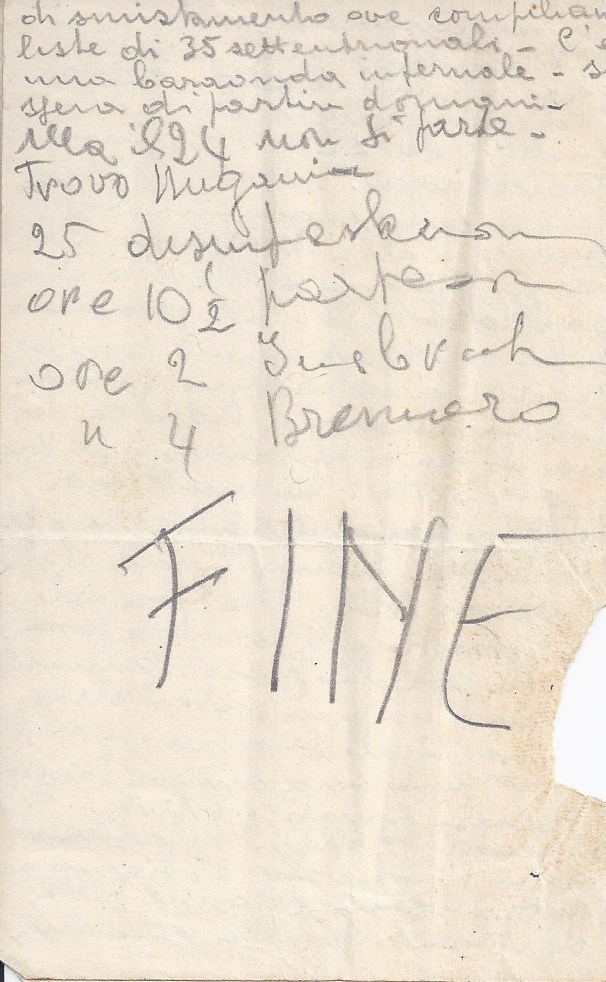 di smistamento ove compilian
liste di 35 settentrionali - C'è
una baraonda infernale - s
spera di partire domani -
Ma il 24 non si parte -
Trovo
25 disinfestazion
ore 10 1/2
ore 2 Insbruch
" 4 Brennero
FINE